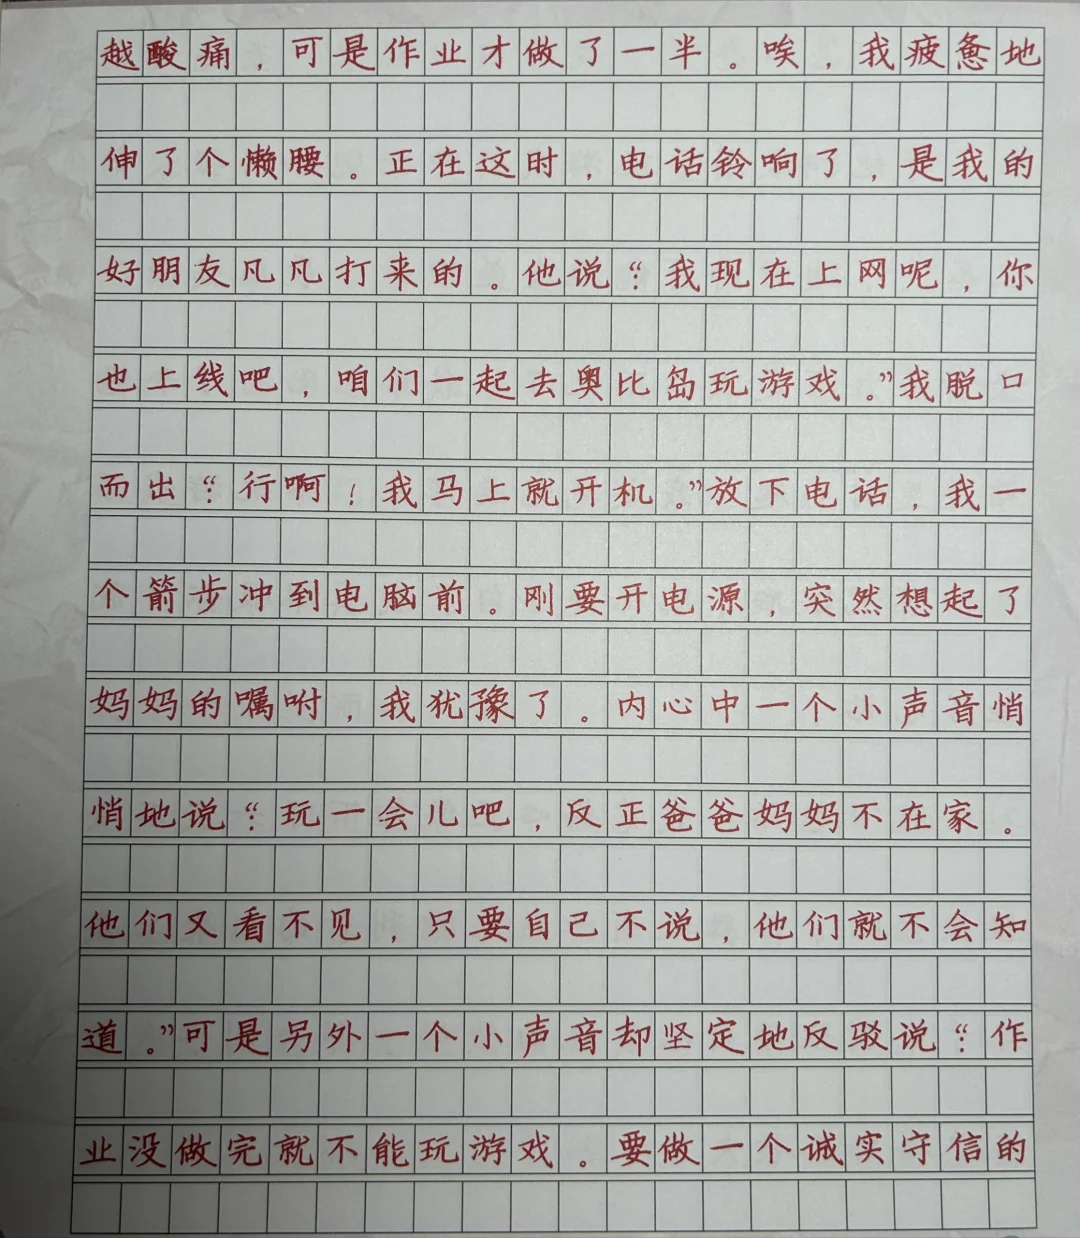 越酸痛，可是作业才做了一半。唉，我疲惫地
伸了个懒腰。正在这时，电话铃响了，是我的
好朋友凡凡打来的。他说：“我现在上网呢，你
也上线吧，咱们一起去奥比岛玩游戏。”我脱口
而出：“行啊！我马上就开机。”放下电话，我一
个箭步冲到电脑前。刚要开电源，突然想起了
妈妈的嘱咐，我犹豫了。内心中一个小声音悄
悄地说：“玩一会儿吧，反正爸爸妈妈不在家。
他们又看不见，只要自己不说，他们就不会知
道。”可是另外一个小声音却坚定地反驳说：“作
业没做完就不能玩游戏。要做一个诚实守信的